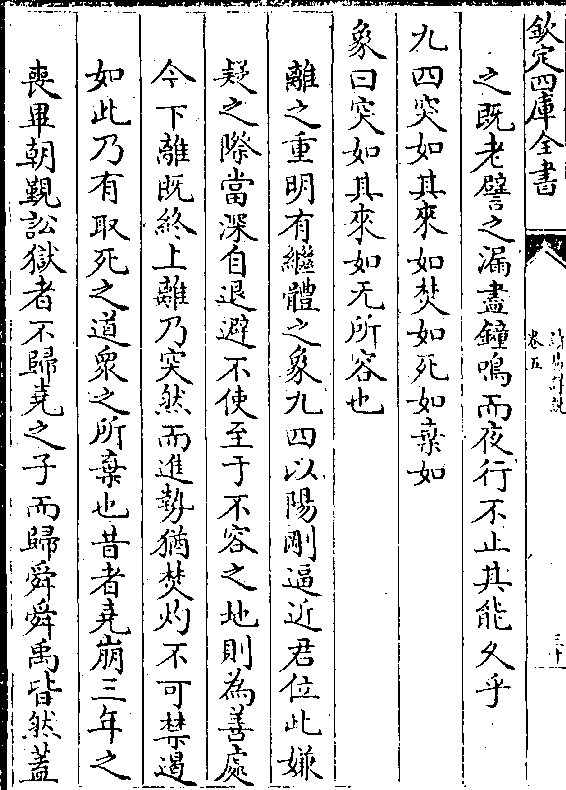 欽定四庫全書
卷五
三十
之既老譬之漏盡鐘鳴而夜行不止其能久乎
九四突如其來如焚如死如棄如
象曰突如其來如无所容也
離之重明有繼體之象九四以陽剛逼近君位此嫌
疑之際當深自退避不使至于不容之地則為善處
今下離既終上離乃突然而進勢猶焚灼不可禁遏
如此乃有取死之道衆之所棄也昔者堯崩三年之
喪畢朝覲訟獄者不歸堯之子而歸舜舜禹皆然蓋